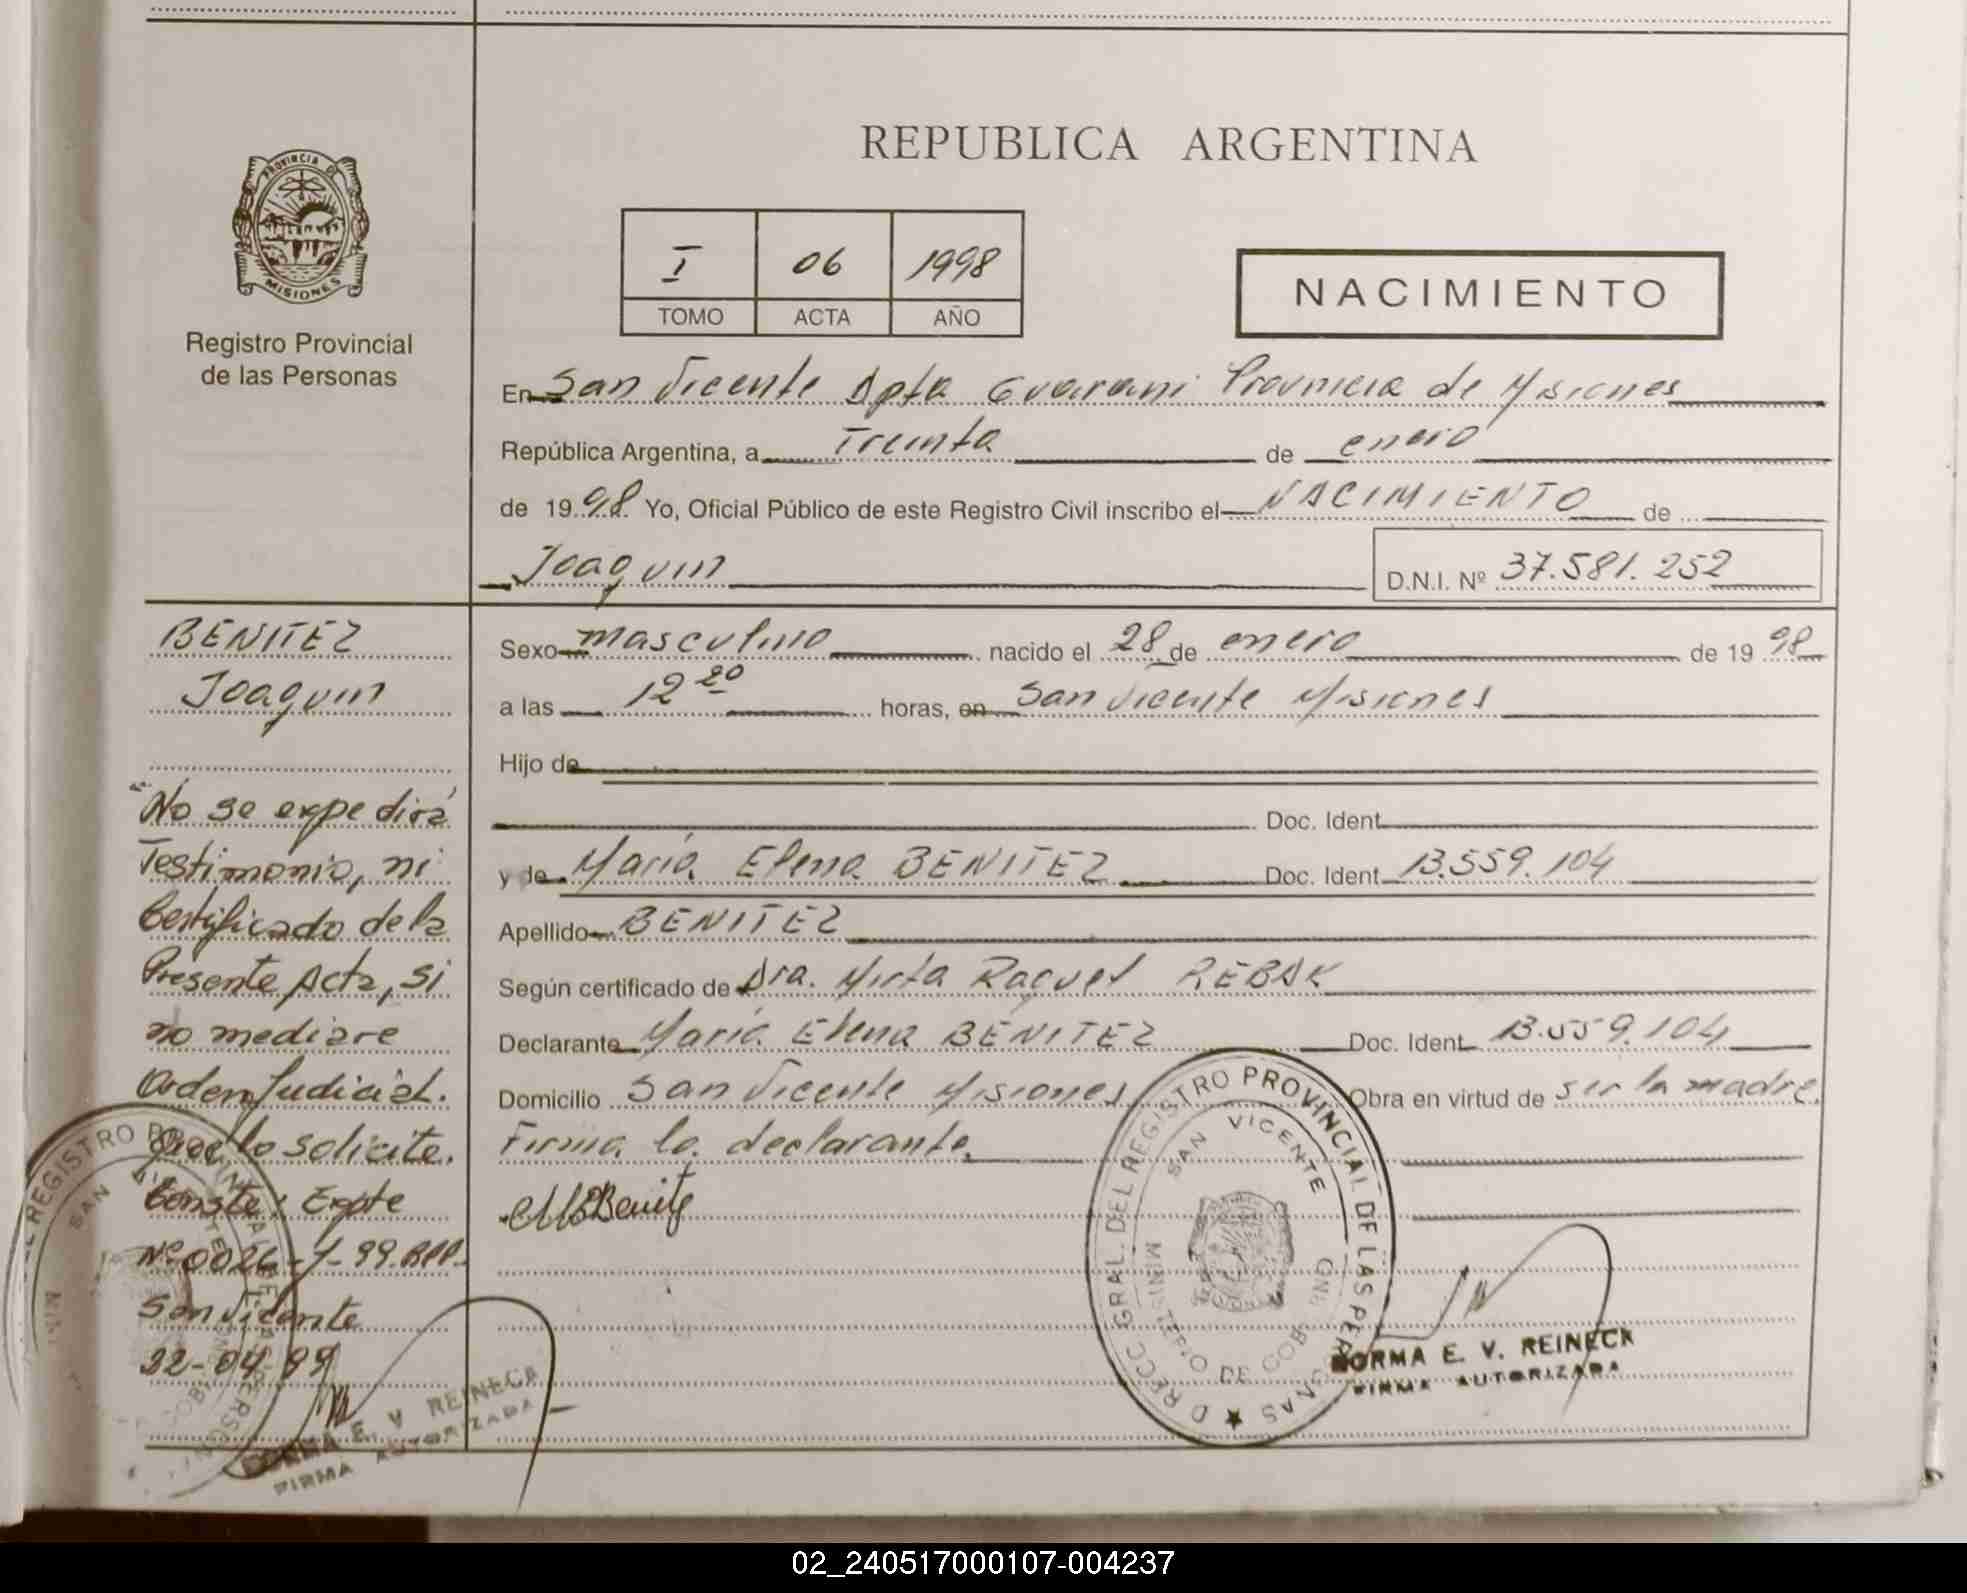 REPUBLICA ARGENTINA
PROVINCIA DE
MISIONES
Registro Provincial
de las Personas
I 06 1998
TOMO ACTA AÑO
NACIMIENTO
En San Vicente Dpto Guarani Provincia de Misiones
República Argentina, a Treinta de enero
de 1998 Yo, Oficial Público de este Registro Civil inscribo el NACIMIENTO de
Joaquin D.N.I. Nº 37.581.252
BENITEZ
Joaquin
"No se expedirá
Testimonio, ni
Certificado de la
Presente Acta, si
no mediare
Orden Judicial.
que lo solicite.
Conste: Expte
Nº 0026-J-99.RPP.
San Vicente
22-04-99
NORMA E. V. REINECK
FIRMA AUTORIZADA
Sexo masculino nacido el 28 de enero de 1998
a las 12 20 horas, en San Vicente Misiones
Hijo de
Doc. Ident.
y de Maria Elena BENITEZ Doc. Ident. 13.559.104
Apellido BENITEZ
Según certificado de Dra. Mirta Raquel REBAK
Declarante Maria Elena BENITEZ Doc. Ident. 13.559.104
Domicilio San Vicente Misiones Obra en virtud de ser la madre.
Firma la declarante.
MEBenite
DIRECC GRAL. DEL REGISTRO PROVINCIAL DE LAS PERSONAS
SAN VICENTE
MINISTERIO DE GOBIERNO
NORMA E. V. REINECK
FIRMA AUTORIZADA
02_240517000107-004237